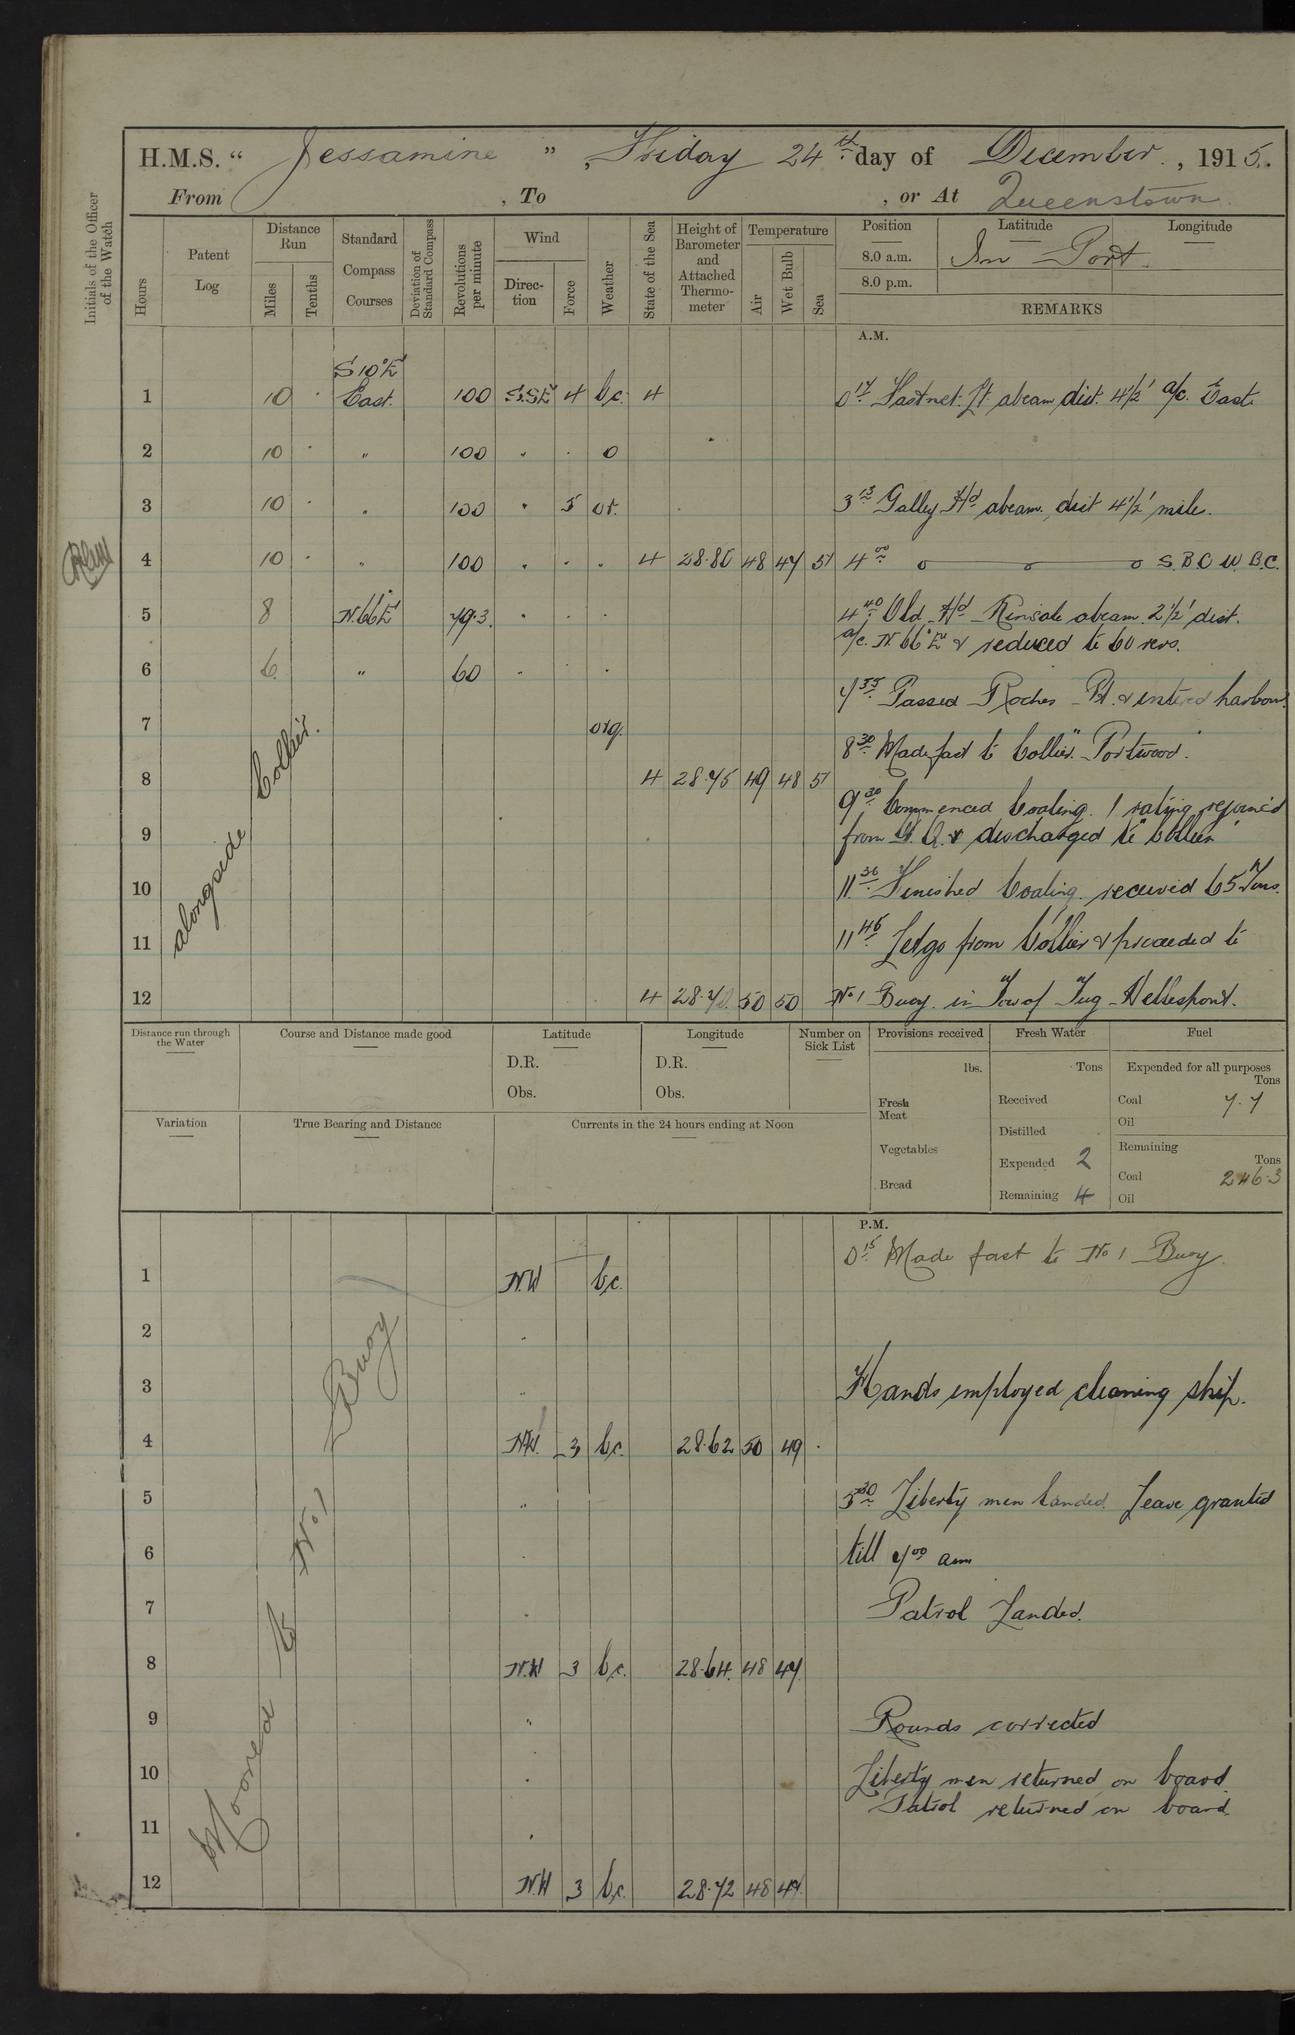 H.M.S. “ Jessamine ” , Friday 24th day of December , 1915.
From , To , or At Queenstown.
Initials of the Officer of the Watch
Hours
Patent Log
Distance Run
Miles
Tenths
Standard Compass Courses
Deviation of Standard Compass
Revolutions per minute
Wind
Direction
Force
Weather
State of the Sea
Height of Barometer and Attached Thermometer
Temperature
Air
Wet Bulb
Sea
Position
Latitude
Longitude
8.0 a.m. In Port.
8.0 p.m.
REMARKS
A.M.
S10°E
1 10 · East. 100 S.SE 4 b.c. 4 0.17 Fastnet. Lt abeam dist. 4½' a/c. East.
2 10 · „ 100 · · o
3 10 · „ 100 · 5 or. 3.13 Galley Hd abeam, dist 4½' mile.
4 10 · „ 100 · · · 4 28.80 48 47 51 4.00 S.B.O.W.B.C.
5 8 N.66°E 79.3 · · · 4.40 Old Hd Kinsale abeam 2½' dist.
a/c. N.66°E & reduced to 60 revs.
6 6 „ 60 · · ·
7.55 Passed Roches Pt. & entered harbour
7 org.
8.30 Made fast to Collier "Portwood"
8 4 28.75 49 48 51
9.30 Commenced Coaling. 1 rating rejoined
9 from & discharged to Collier
10 11.36 Finished Coaling. received 65 Tons.
11 11.45 Let go from Collier & proceeded to
12 4 50 50 No 1 Buoy in Tow of Tug Hellespont.
alongside Collier.
Distance run through the Water
Course and Distance made good
Latitude
D.R.
Obs.
Longitude
D.R.
Obs.
Number on Sick List
Provisions received
lbs.
Fresh Meat
Vegetables
Bread
Fresh Water
Tons
Received
Distilled
Expended 2
Remaining 4
Fuel
Expended for all purposes
Tons
Coal 7.7
Oil
Remaining
Tons
Coal 246.3
Oil
Variation
True Bearing and Distance
Currents in the 24 hours ending at Noon
P.M.
0.15 Made fast to No 1 Buoy.
1 N.W b.c.
2 „
3 „ Hands employed cleaning ship.
4 N.W. 3 b.c. 28.62 50 49 ·
5 „ 5.30 Liberty men landed. Leave granted
6 · till 7.00 am
7 · Patrol Landed.
8 N.W 3 b.c. 28.64 48 47
9 „ Rounds corrected
10 · Liberty men returned on board.
Patrol returned on board.
11 ·
12 N.W 3 b.c. 28.72 48 47
Moored to No 1 Buoy